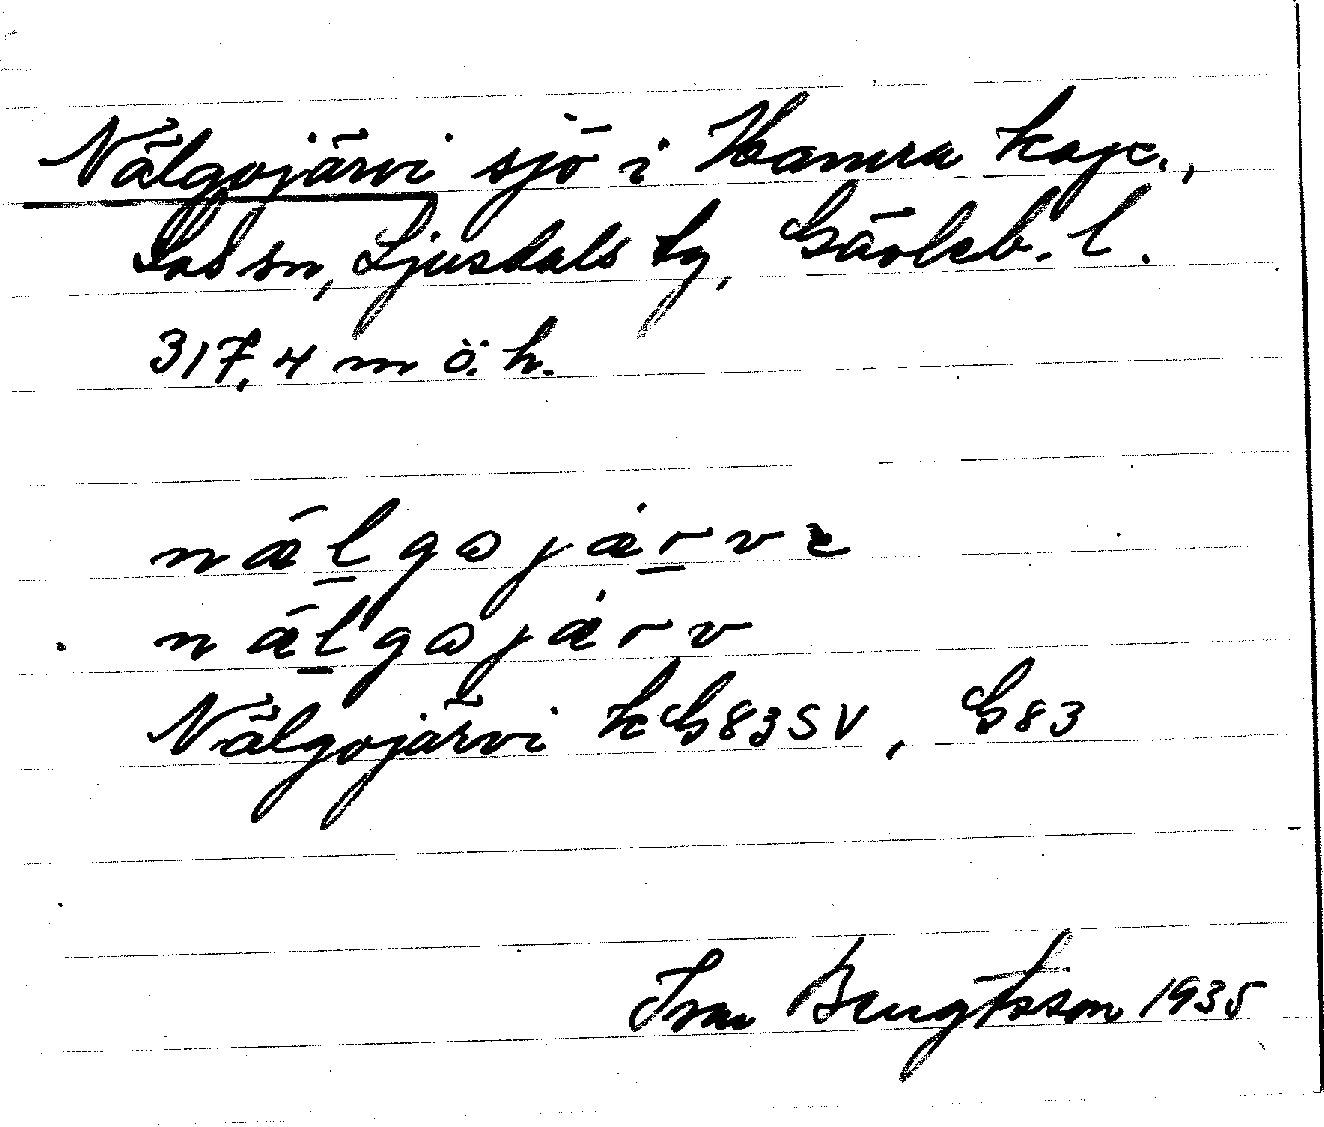 Nälgojärvi sjö i Hamra kap.,
Los sn, Ljusdals tg, Gävleb. l.
317,4 m ö. h.
nǽl̲gɷjæ̀r̲vɛ
nǽl̲gɷjæ̀rv
Nälgojärvi kG83SV, G83
Ivar Bengtsson 1935